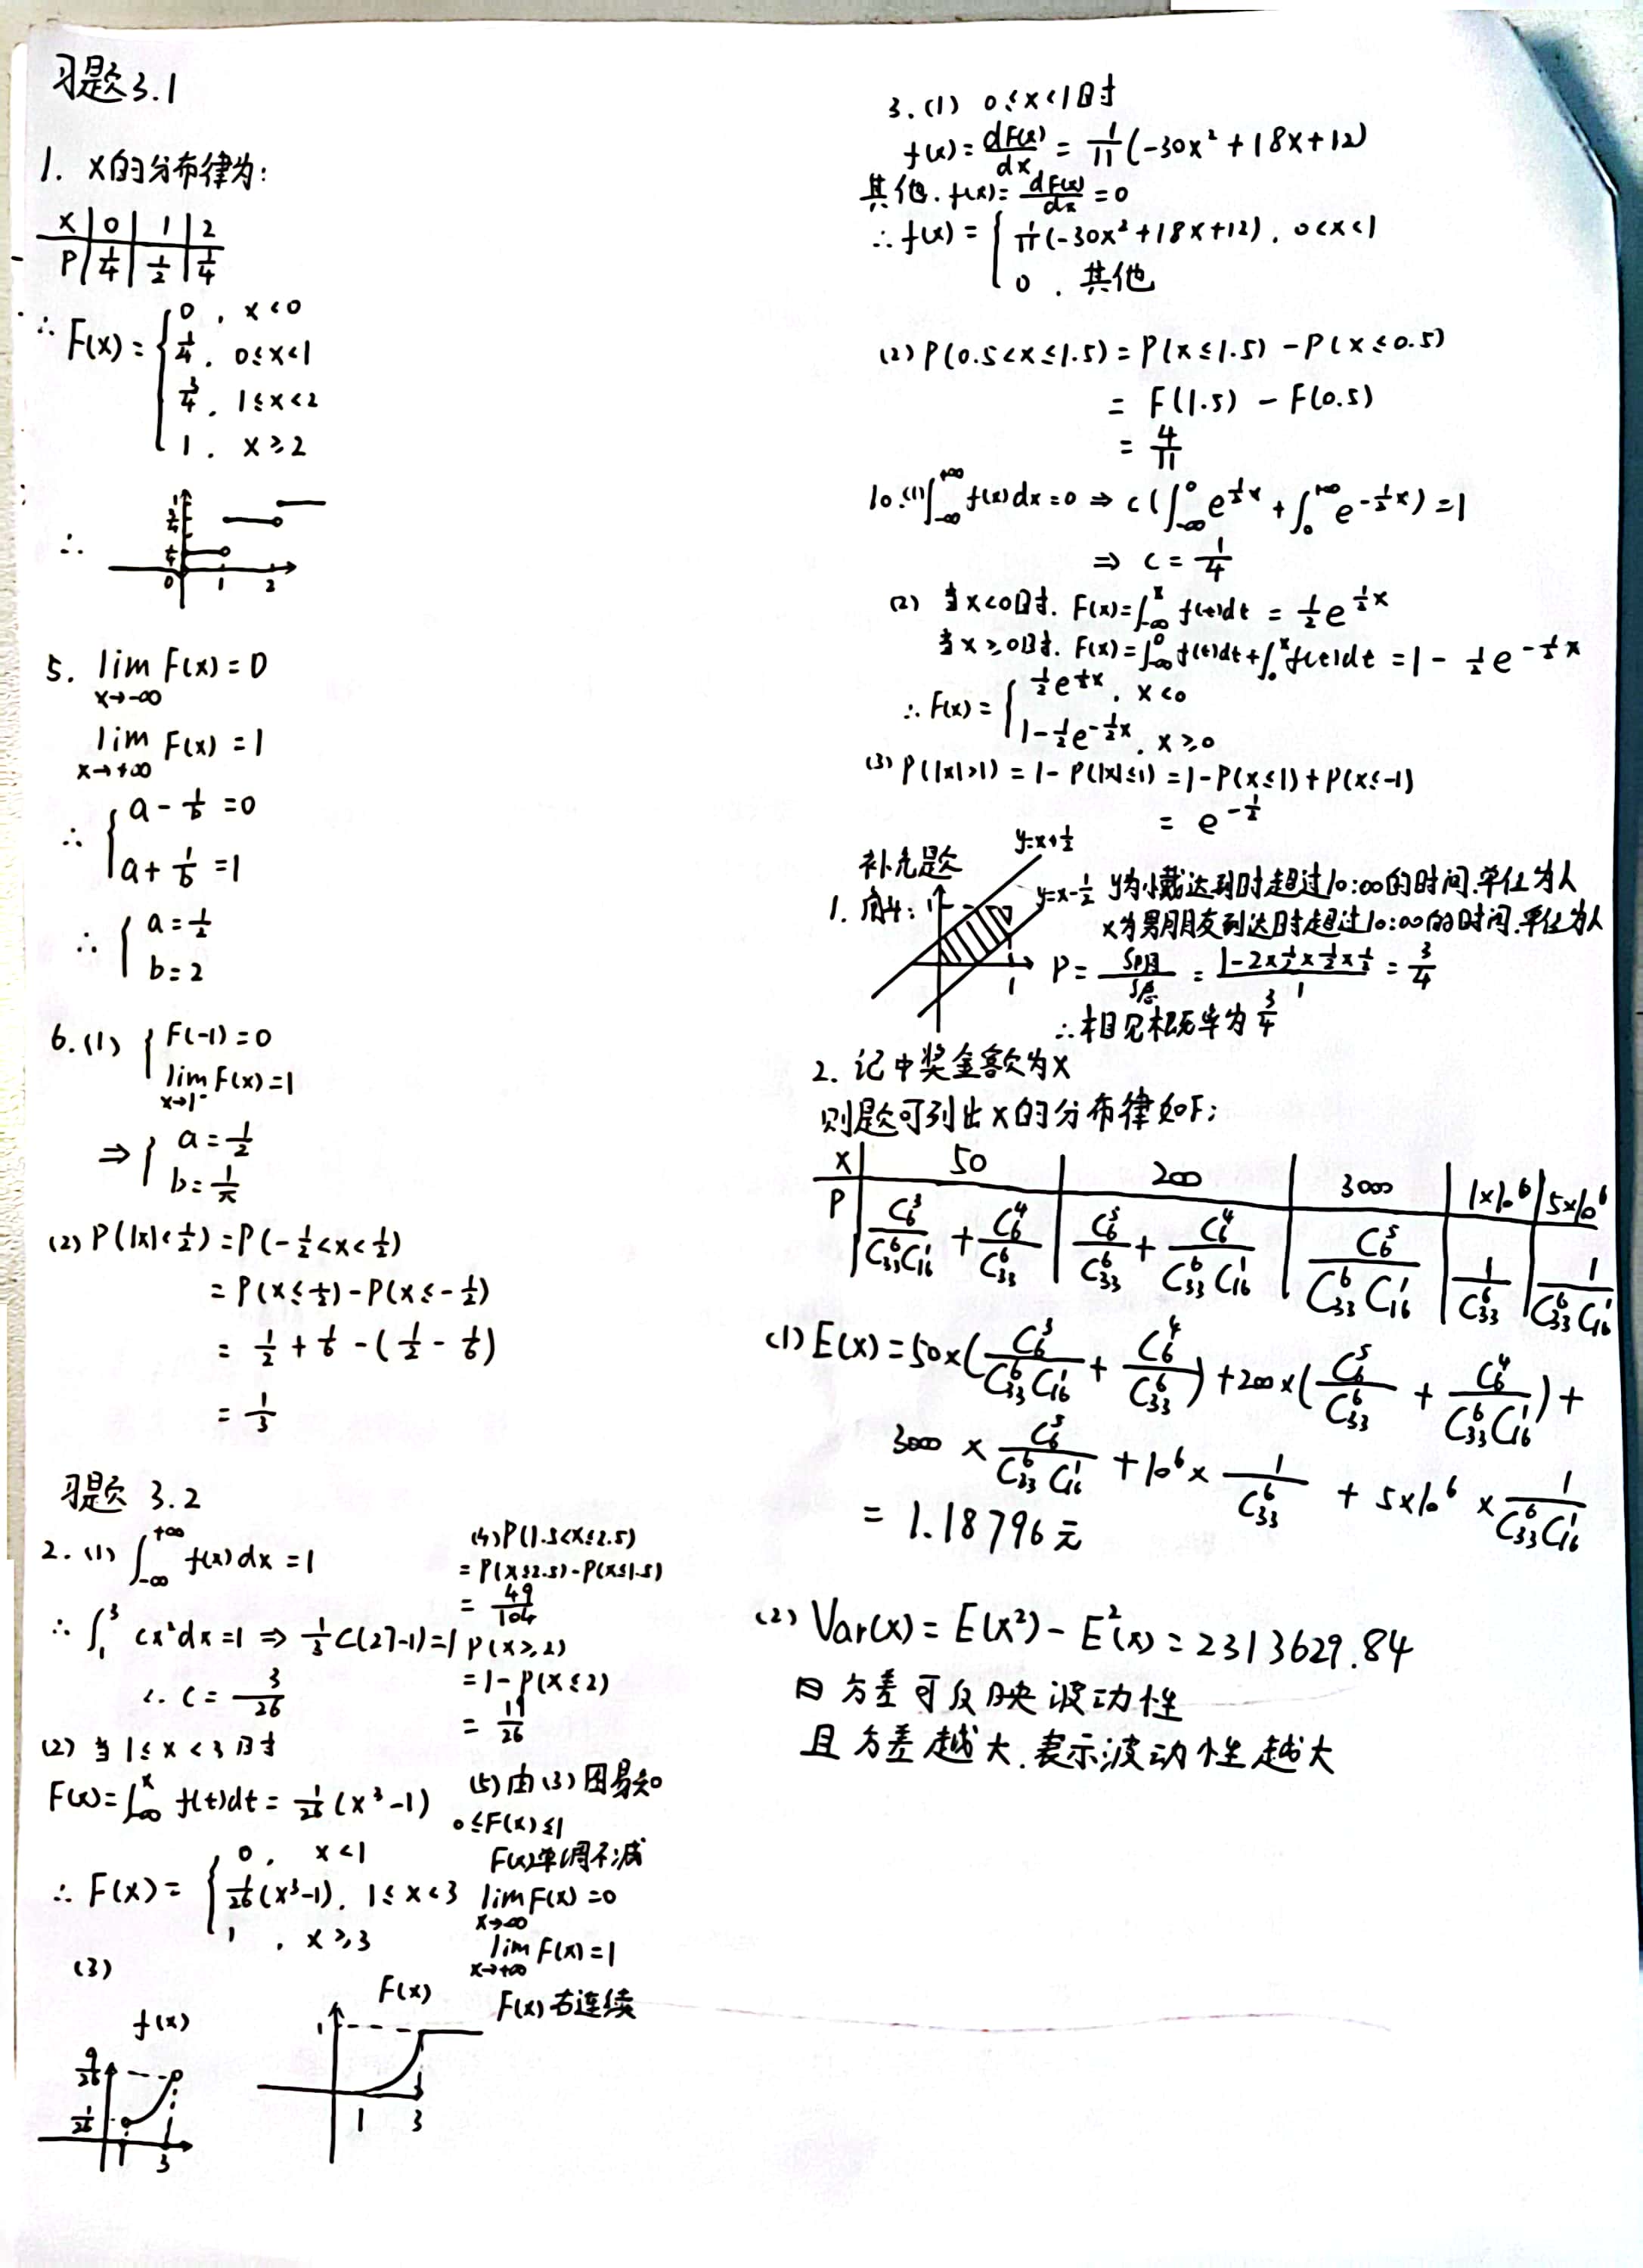 习题3.1
1. X的分布律为:
X | 0 | 1 | 2
P | 1/4 | 1/2 | 1/4
∴ F(x) = { 0, x<0
1/4, 0≤x<1
3/4, 1≤x<2
1, x≥2
∴
1
3/4
1/4
0 1 2
5. lim_{x→-∞} F(x) = 0
lim_{x→+∞} F(x) = 1
∴ { a - 1/b = 0
a + 1/b = 1
∴ { a = 1/2
b = 2
6.(1) { F(-1) = 0
lim_{x→1⁻} F(x) = 1
⇒ { a = 1/2
b = 1/π
(2) P(|x|<1/2) = P(-1/2<x<1/2)
= P(x≤1/2) - P(x≤-1/2)
= 1/2 + 1/6 - (1/2 - 1/6)
= 1/3
习题 3.2
2.(1) ∫_{-∞}^{+∞} f(x)dx = 1
∴ ∫_1^3 cx²dx = 1 ⇒ 1/3 C(27-1) = 1
∴ C = 3/26
(2) 当 1≤x<3 时
F(x) = ∫_{-∞}^x f(t)dt = 1/26 (x³-1)
∴ F(x) = { 0, x<1
1/26 (x³-1), 1≤x<3
1, x≥3
(3)
f(x)
9/26
1/26
1 3
F(x)
1
1 3
(4) P(1.5<x≤2.5)
= P(x≤2.5) - P(x≤1.5)
= 49/104
P(x≥2)
= 1 - P(x≤2)
= 19/26
(5) 由(3)图易知
0≤F(x)≤1
F(x)单调不减
lim_{x→-∞} F(x) = 0
lim_{x→+∞} F(x) = 1
F(x) 右连续
3.(1) 0≤x<1时
f(x) = dF(x)/dx = 1/11 (-30x² + 18x + 12)
其他. f(x) = dF(x)/dx = 0
∴ f(x) = { 1/11 (-30x² + 18x + 12), 0<x<1
0, 其他
(2) P(0.5<x≤1.5) = P(x≤1.5) - P(x≤0.5)
= F(1.5) - F(0.5)
= 4/11
10.(1) ∫_{-∞}^{+∞} f(x)dx = 0 ⇒ c(∫_{-∞}^0 e^{1/2 x} + ∫_0^{+∞} e^{-1/2 x}) = 1
⇒ c = 1/4
(2) 当x<0时. F(x) = ∫_{-∞}^x f(t)dt = 1/2 e^{1/2 x}
当x≥0时. F(x) = ∫_{-∞}^0 f(t)dt + ∫_0^x f(t)dt = 1 - 1/2 e^{-1/2 x}
∴ F(x) = { 1/2 e^{1/2 x}, x<0
1 - 1/2 e^{-1/2 x}, x≥0
(3) P(|x|>1) = 1 - P(|x|≤1) = 1 - P(x≤1) + P(x≤-1)
= e^{-1/2}
补充题
1. 解:
y=x+1/2
y=x-1/2
1
1
y为小戴达到时超过10:00的时间.单位为人
x为男朋友到达时超过10:00的时间.单位为人
P = S阴/S总 = (1 - 2×1/2×1/2×1/2)/1 = 3/4
∴相见概率为 3/4
2. 记中奖金额为X
则题可列出X的分布律如下:
X | 50 | 200 | 3000 | 1×10⁶ | 5×10⁶
P | C_6^3/(C_33^6 C_16^1) + C_6^4/C_33^6 | C_6^5/C_33^6 + C_6^4/(C_33^6 C_16^1) | C_6^5/(C_33^6 C_16^1) | 1/C_33^6 | 1/(C_33^6 C_16^1)
(1) E(x) = 50×(C_6^3/(C_33^6 C_16^1) + C_6^4/C_33^6) + 200×(C_6^5/C_33^6 + C_6^4/(C_33^6 C_16^1)) +
3000 × C_6^5/(C_33^6 C_16^1) + 10⁶ × 1/C_33^6 + 5×10⁶ × 1/(C_33^6 C_16^1)
= 1.18796元
(2) Var(x) = E(x²) - E²(x) = 2313629.84
方差可反映波动性
且方差越大.表示波动性越大